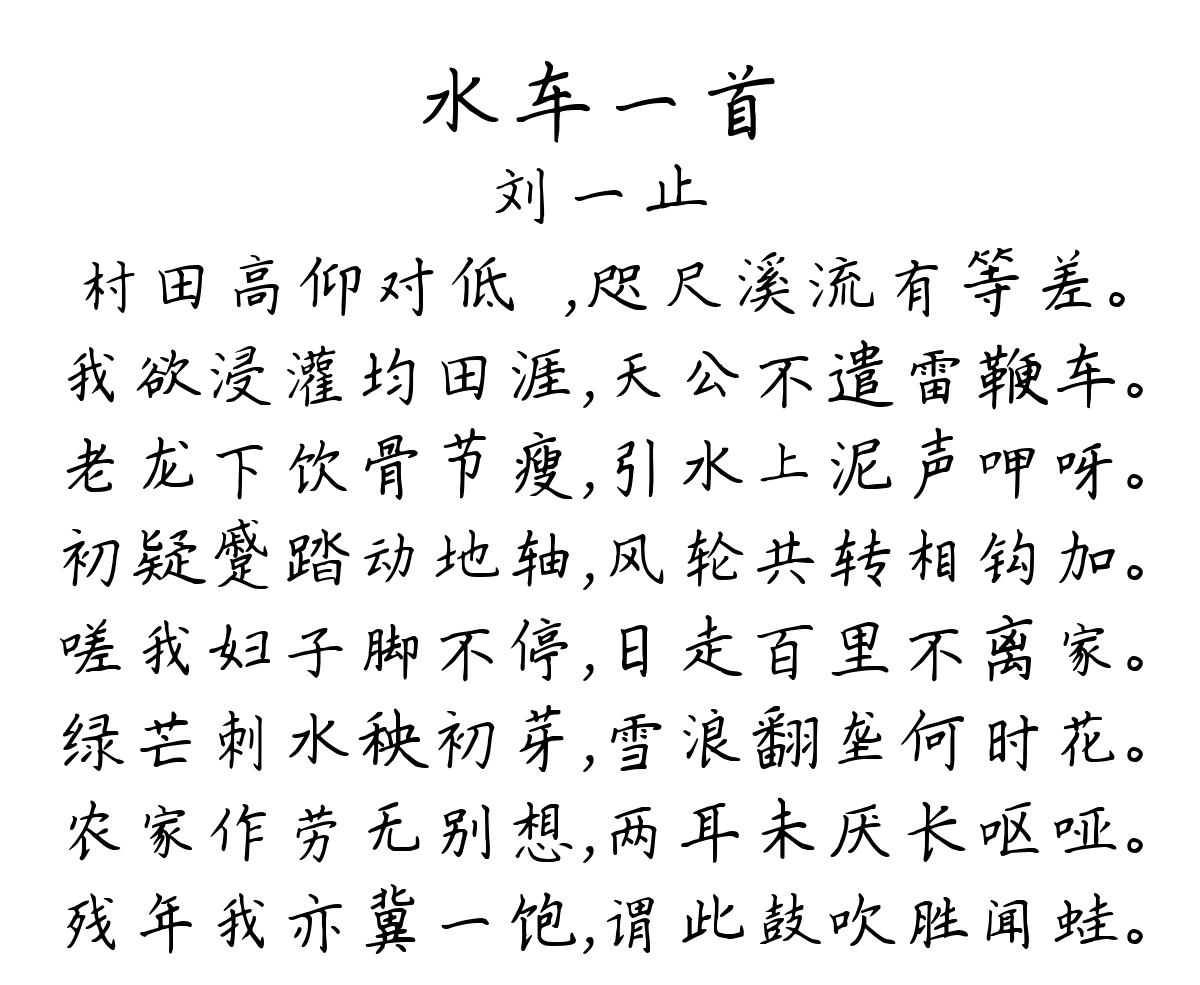 水车一首
刘一止
村田高仰对低 ,咫尺溪流有等差。
我欲浸灌均田涯,天公不遣雷鞭车。
老龙下饮骨节瘦,引水上泥声呷呀。
初疑蹙踏动地轴,风轮共转相钩加。
嗟我妇子脚不停,日走百里不离家。
绿芒刺水秧初芽,雪浪翻垄何时花。
农家作劳无别想,两耳未厌长呕哑。
残年我亦冀一饱,谓此鼓吹胜闻蛙。